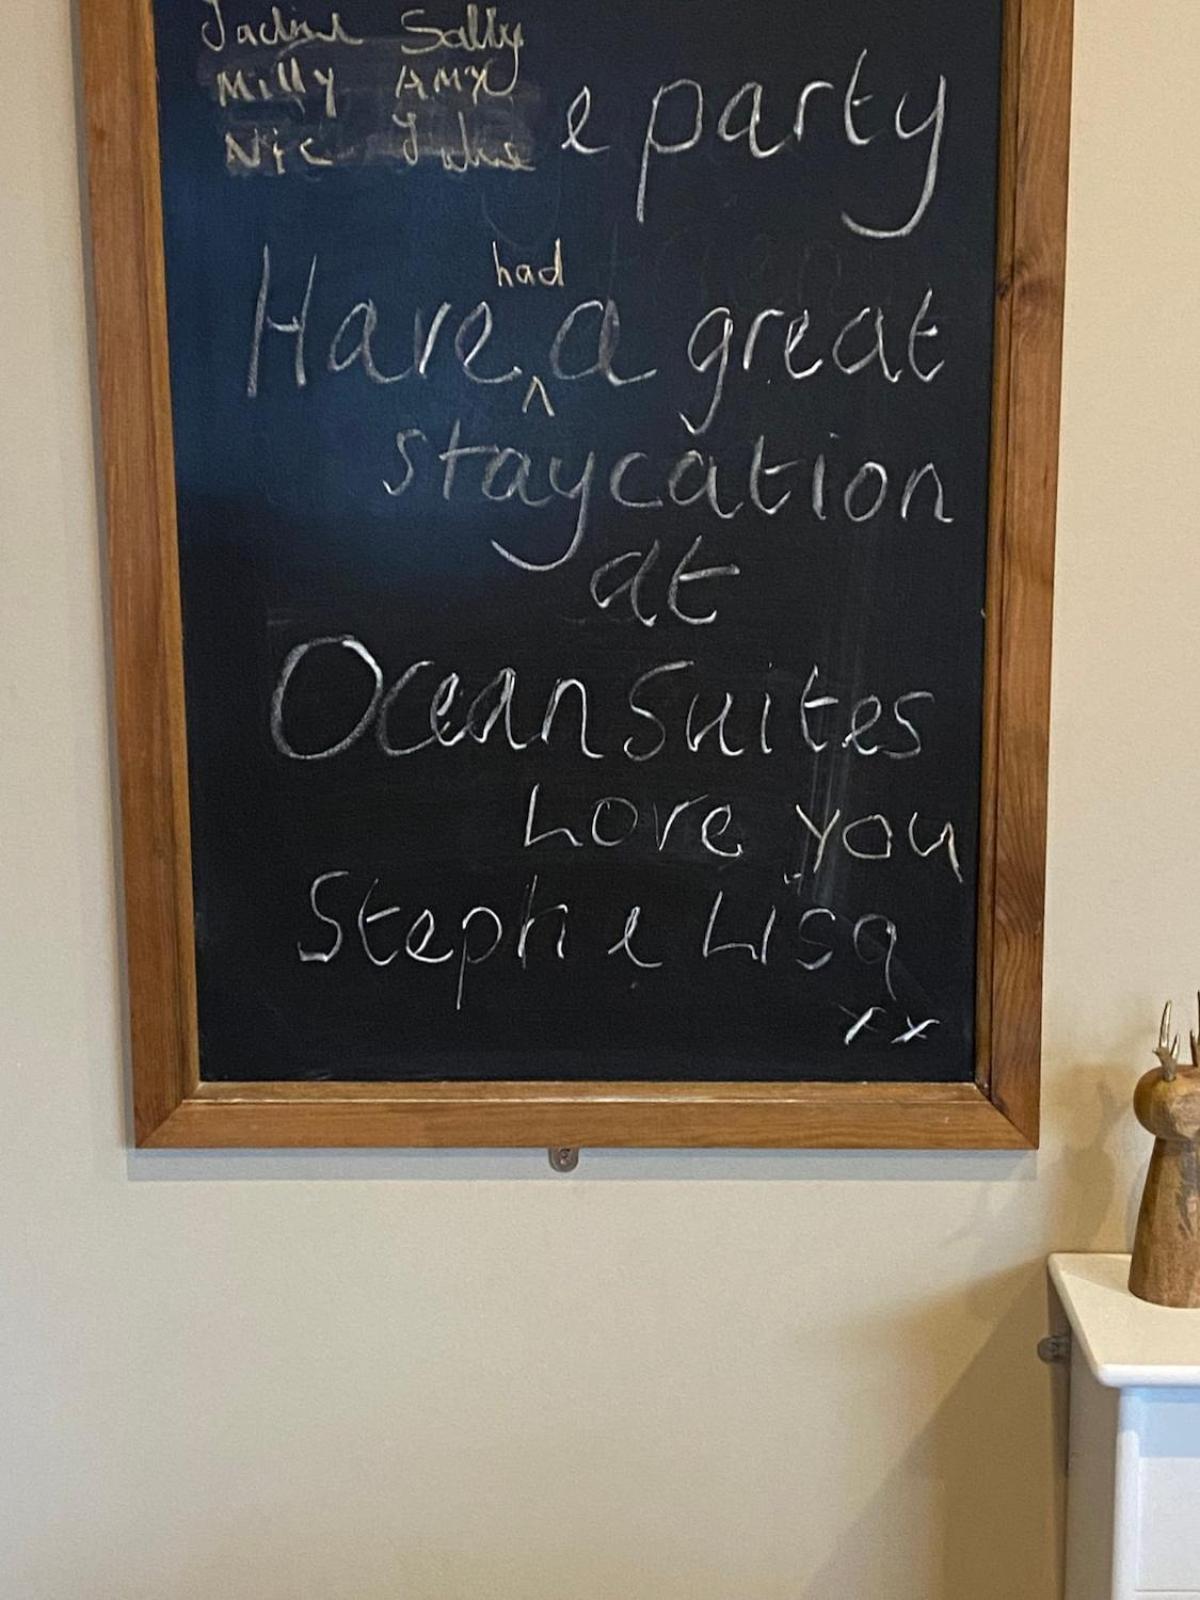 Jackie Sally
Milly AMY
Nic
e party
had
Have ^ a great
staycation
at
Ocean Suites
Love you
Steph e Lisa
xx